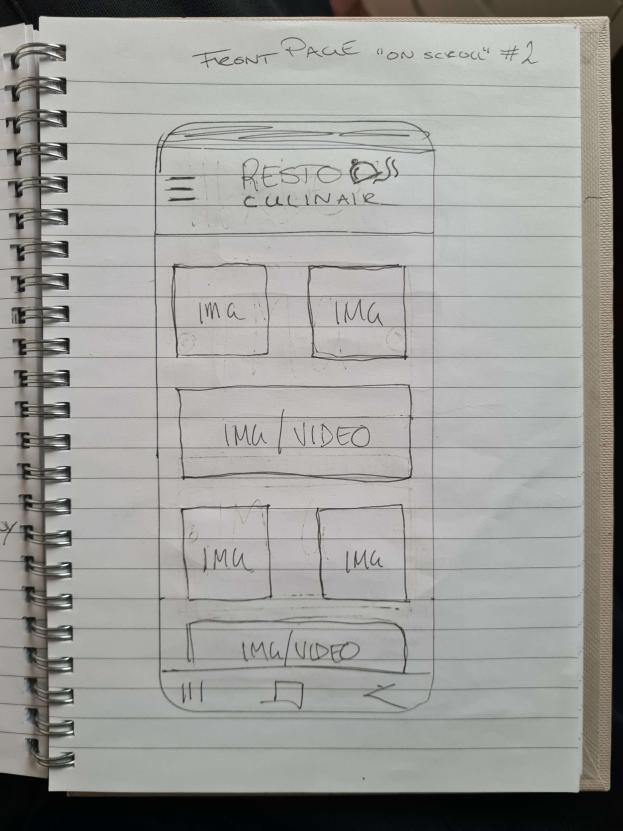 FRONT PAGE "ON SCROLL" #2
RESTO
CULINAIR
IMG IMG
IMG/VIDEO
IMG IMG
IMG/VIDEO